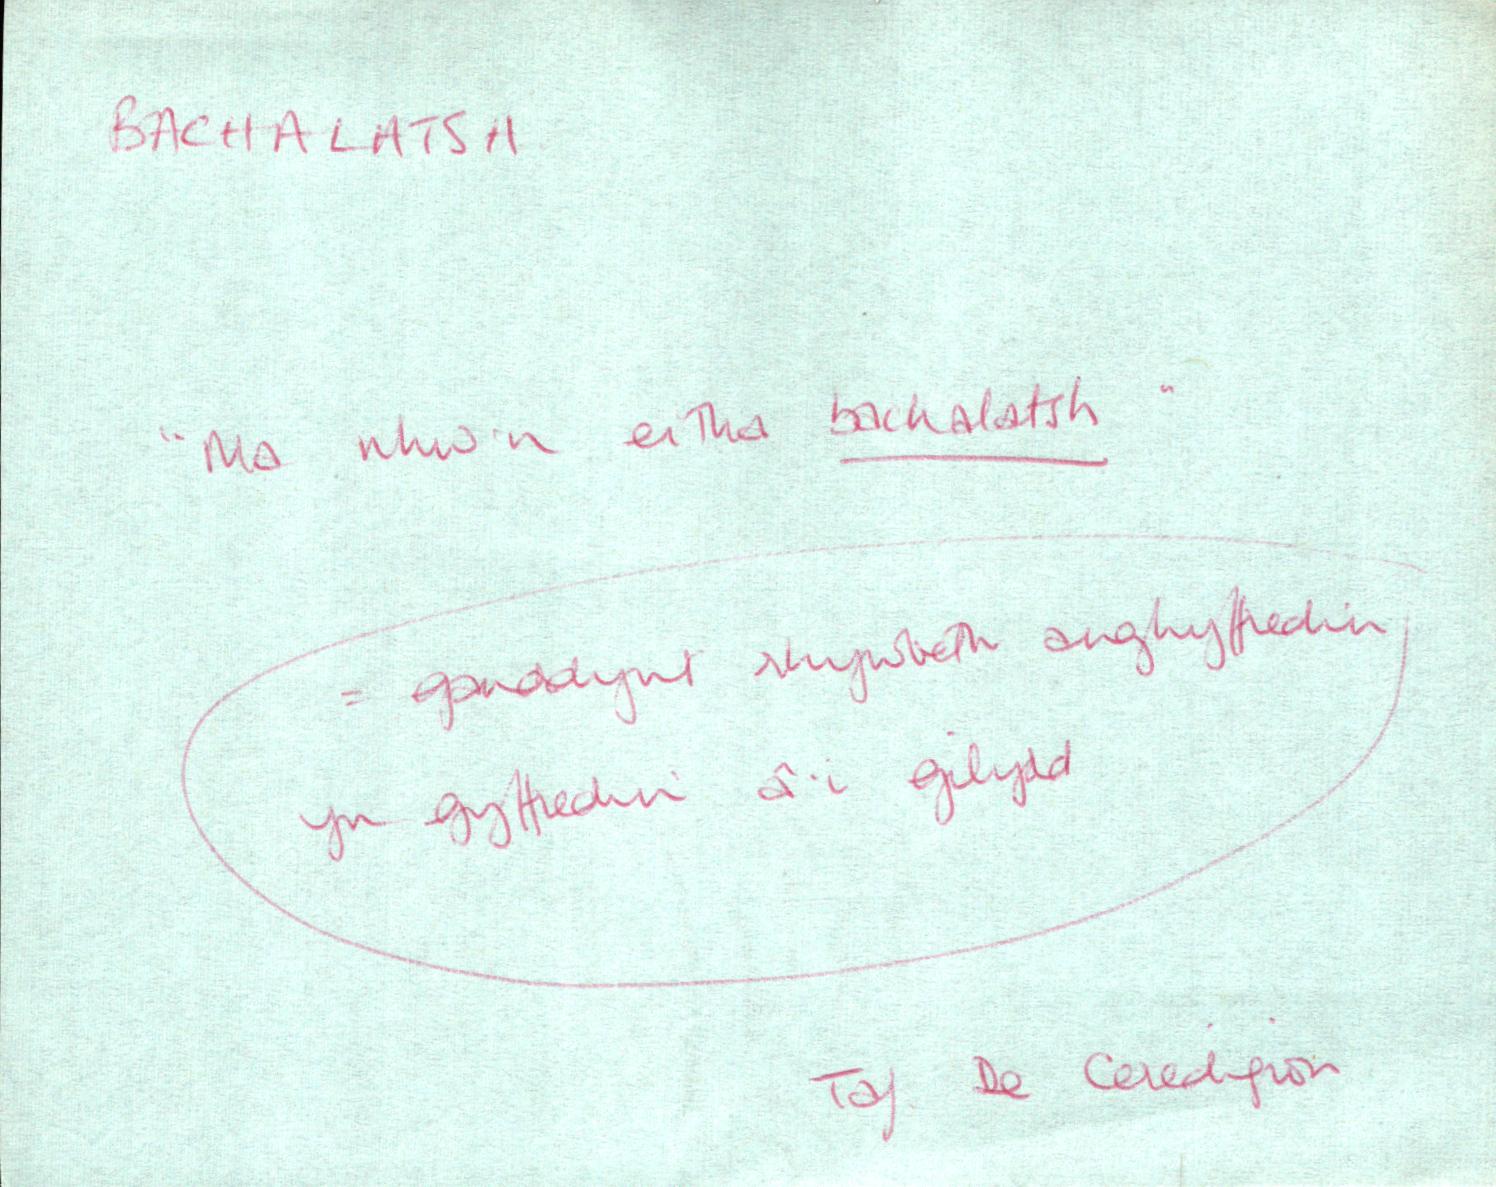 BACHALATSH
"Ma nhw'n eitha bachalatsh"
= ganddynt rhywbeth anghyffredin
yn gyffredin â'i gilydd
Taf. De Ceredigion